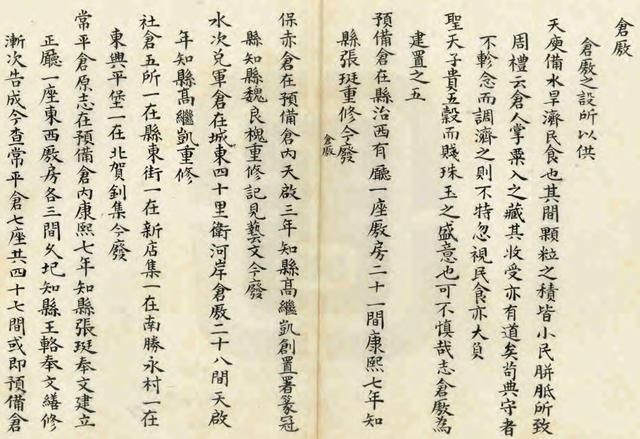 倉廒
倉廒之設所以供
天庾備水旱濟民食也其間顆粒之積皆小民胼胝所致
周禮云倉人掌粟入之藏其收受亦有道矣苟典守者
不軫念而調濟之則不特忽視民食亦大負
聖天子貴五穀而賤珠玉之盛意也可不慎哉志倉廒為
建置之五
預備倉在縣治西有廳一座廒房二十一間康熙七年知
縣張珽重修今廢
倉廒
保赤倉在預備倉內天啟三年知縣高繼凱創置署篆冠
縣知縣魏良槐重修記見藝文今廢
水次兌軍倉在城東四十里衛河岸倉廒二十八間天啟
年知縣高繼凱重修
社倉五所一在縣東街一在新店集一在南勝永村一在
東興平堡一在北賀釗集今廢
常平倉原志在預備倉內康熙七年知縣張珽奉文建立
正廳一座東西廒房各三間久圮知縣王輅奉文繕修
漸次告成今查常平倉七座共四十七間或即預備倉